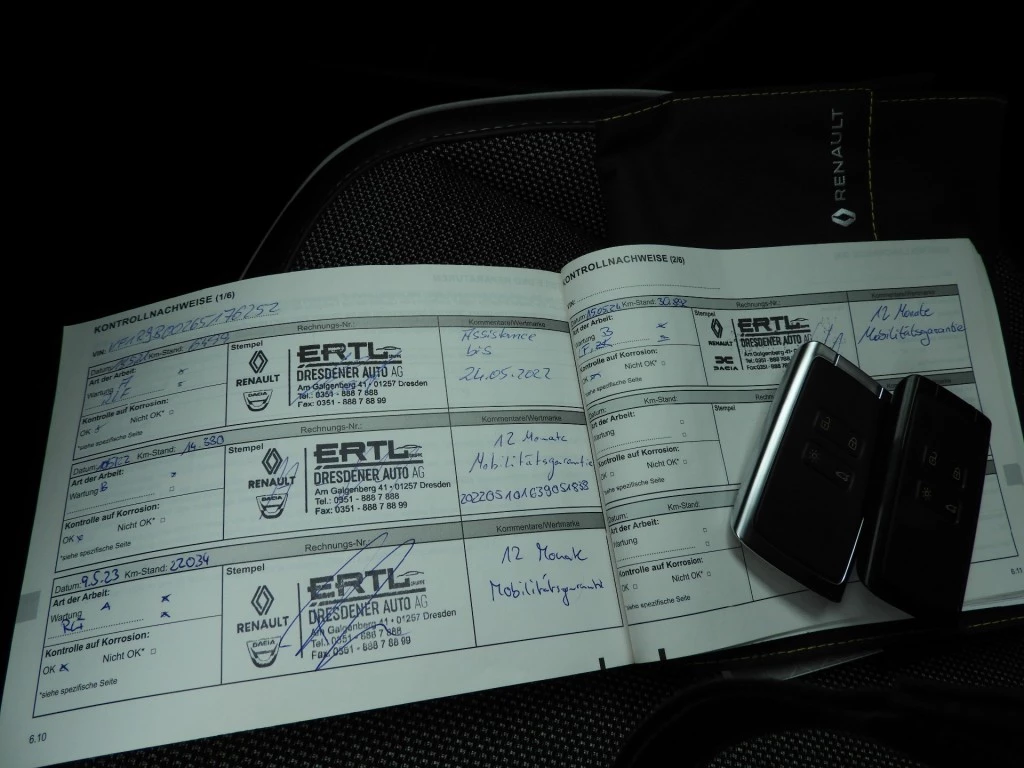 RENAULT
KONTROLLNACHWEISE (1/6)
VIN:
Datum: Km-Stand:
Rechnungs-Nr.:
Kommentare/Wertmarke
Art der Arbeit:
Wartung
Kontrolle auf Korrosion:
OK Nicht OK*
*siehe spezifische Seite
Stempel
RENAULT
DACIA
ERTL
DRESDENER AUTO AG
Am Galgenberg 41 • 01257 Dresden
Tel.: 0351 - 888 7 888
Fax: 0351 - 888 7 88 99
Assistance
bis
24.05.2022
Datum: Km-Stand: 14 380
Rechnungs-Nr.:
Kommentare/Wertmarke
Art der Arbeit:
Wartung B
Kontrolle auf Korrosion:
OK x Nicht OK*
*siehe spezifische Seite
Stempel
RENAULT
DACIA
ERTL
DRESDENER AUTO AG
Am Galgenberg 41 • 01257 Dresden
Tel.: 0351 - 888 7 888
Fax: 0351 - 888 7 88 99
12 Monate
Mobilitätsgarantie
Datum: 9.5.23 Km-Stand: 22034
Rechnungs-Nr.:
Kommentare/Wertmarke
Art der Arbeit:
Wartung A x
x
Kontrolle auf Korrosion:
OK x Nicht OK*
*siehe spezifische Seite
Stempel
RENAULT
DACIA
ERTL
DRESDENER AUTO AG
Am Galgenberg 41 • 01257 Dresden
Tel.: 0351 - 888 7 888
Fax: 0351 - 888 7 88 99
12 Monate
Mobilitätsgarantie
6.10
KONTROLLNACHWEISE (2/6)
VIN:
Datum: Km-Stand:
Rechnungs-Nr.:
Kommentare/Wertmarke
Art der Arbeit:
Wartung B
Kontrolle auf Korrosion:
OK Nicht OK*
*siehe spezifische Seite
Stempel
RENAULT
DACIA
ERTL
DRESDENER AUTO
Am Galgenberg 41
12 Monate
Mobilitätsgarantie
Datum: Km-Stand:
Art der Arbeit:
Wartung
Kontrolle auf Korrosion:
OK Nicht OK*
*siehe spezifische Seite
Stempel
Datum: Km-Stand:
Art der Arbeit:
Wartung
Kontrolle auf Korrosion:
OK Nicht OK*
*siehe spezifische Seite
Stempel
6.11